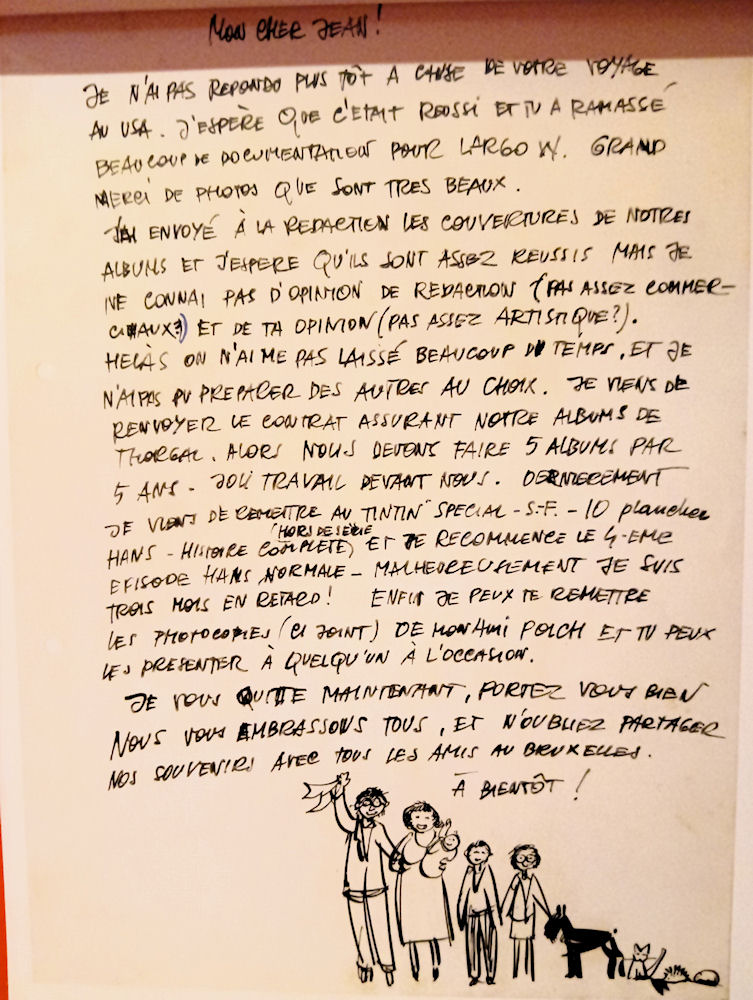 MON CHER JEAN!
JE N'AI PAS REPONDU PLUS TÔT A CAUSE DE VOTRE VOYAGE
AU USA. J'ESPÈRE QUE C'ETAIT REUSSI ET TU A RAMASSÉ
BEAUCOUP DE DOCUMENTATION POUR LARGO W. GRAND
MERCI DE PHOTOS QUE SONT TRES BEAUX.
J'AI ENVOYÉ À LA REDACTION LES COUVERTURES DE NOTRES
ALBUMS ET J'ESPERE QU'ILS SONT ASSEZ REUSSIS MAIS JE
NE CONNAI PAS D'OPINION DE REDACTION (PAS ASSEZ COMMER-
CIAUX?) ET DE TA OPINION (PAS ASSEZ ARTISTIQUE?).
HELÀS ON N'AI ME PAS LAISSÉ BEAUCOUP DU TEMPS, ET JE
N'AI PAS PU PREPARER DES AUTRES AU CHOIX. JE VIENS DE
RENVOYER LE CONTRAT ASSURANT NOTRE ALBUMS DE
THORGAL. ALORS NOUS DEVONS FAIRE 5 ALBUMS PAR
5 ANS - JOLI TRAVAIL DEVANT NOUS. DERNIEREMENT
JE VIENS DE REMETTRE AU TINTIN" SPECIAL - S.F. - 10 planches
HANS - HISTOIRE COMPLETE, "HORS DE SERIE ET JE RECOMMENCE LE 4-EME
EPISODE HANS "NORMALE - MALHEUREUSEMENT JE SUIS
TROIS MOIS EN RETARD! ENFIN JE PEUX TE REMETTRE
LES PHOTOCOPIES (CI JOINT) DE MON AMI POLCH ET TU PEUX
LES PRESENTER À QUELQU'UN À L'OCCASION.
JE VOUS QUITTE MAINTENANT, PORTEZ VOUS BIEN
NOUS VOUS EMBRASSONS TOUS, ET N'OUBLIEZ PARTAGER
NOS SOUVENIRS AVEC TOUS LES AMIS AU BRUXELLES.
À BIENTÔT!